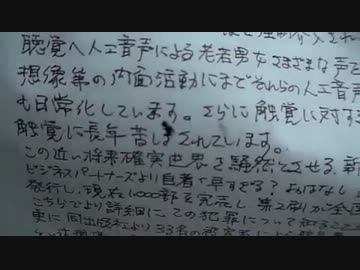 聴覚へ人工音声による老若男女さまざまな声で
想像等の内面活動にまでそれらの人工音声
も日常化しています。さらに触覚に対する
触覚に長年苦しまされています。
この近い将来確実世界を騒然とさせる、新
ビジネスパートナーズより自著「早すぎる？おはなし
発行し、現在1,000部を完売し、第2刷が全国
こちらでより詳細にこの犯罪について知ること
更に同出版社より33名の被害者による